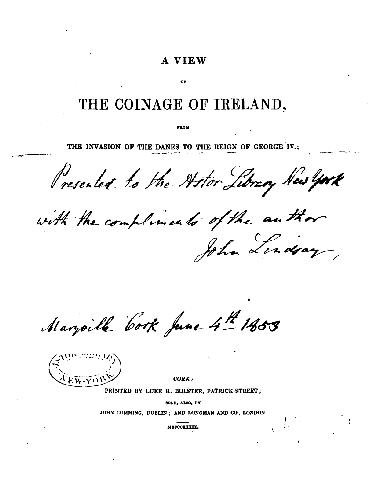 A VIEW
OF
THE COINAGE OF IRELAND,
FROM
THE INVASION OF THE DANES TO THE REIGN OF GEORGE IV.;
Presented to the Astor Library New York
with the compliments of the author
John Lindsay,
Maryville Cork June 4th 1853
NEW-YORK
CORK:
PRINTED BY LUKE H. BOLSTER, PATRICK STREET;
SOLD, ALSO, BY
JOHN CUMMING, DUBLIN; AND LONGMAN AND CO. LONDON